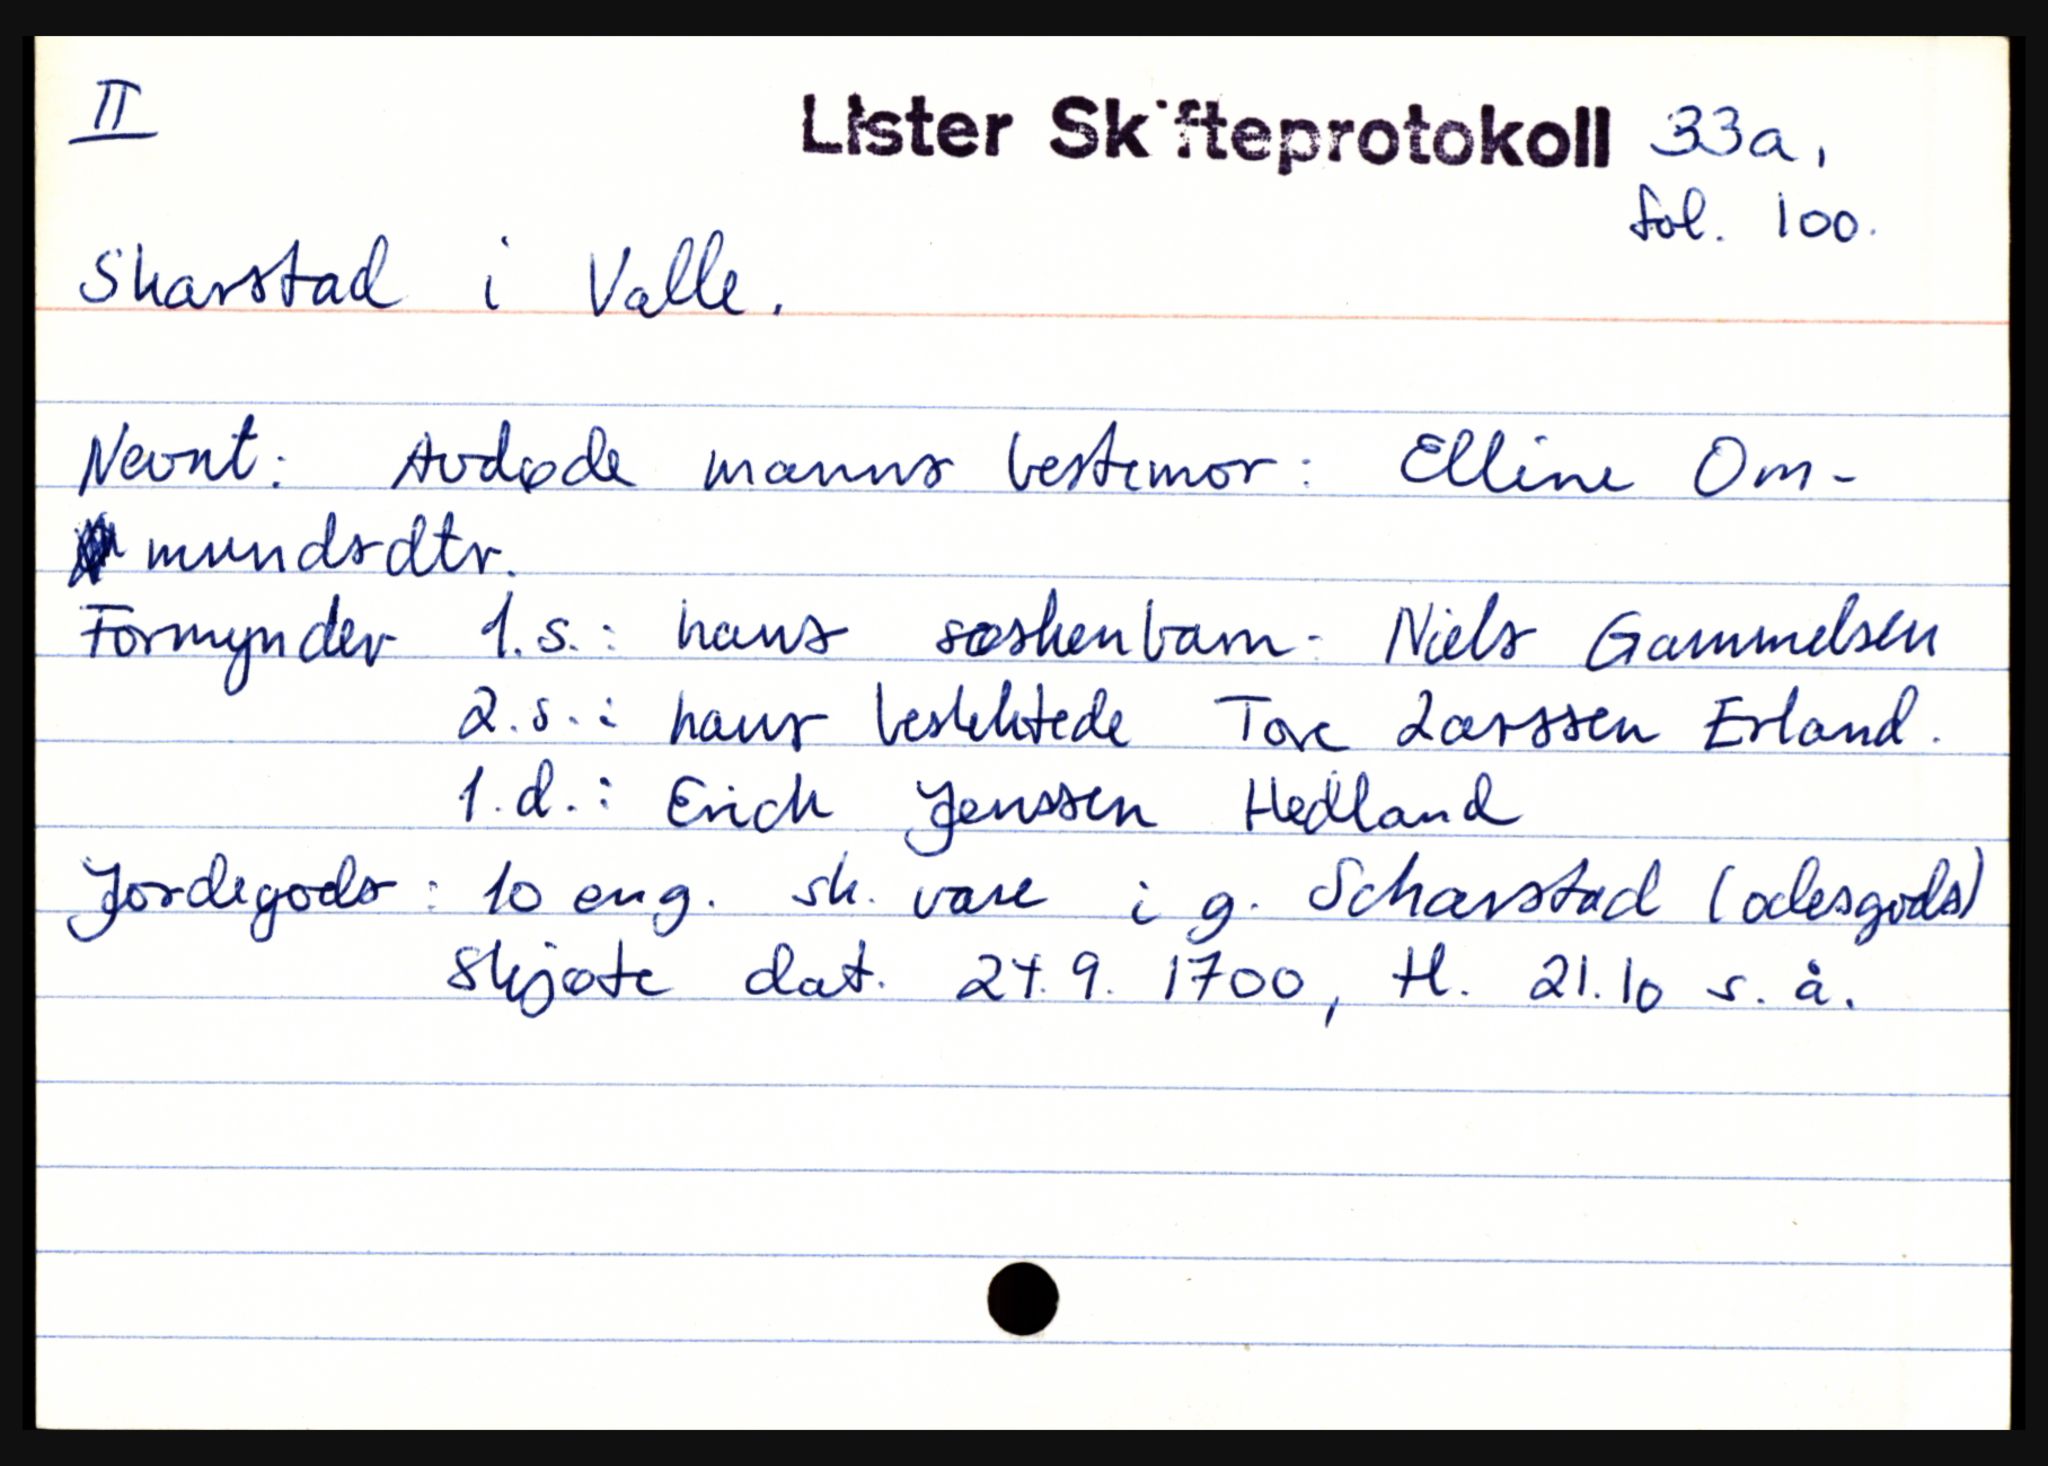 II
Lister Skifteprotokoll 33a,
fol. 100.
Skarstad i Valle.
Nevnt: Avdøde manns bestemor: Elline Om-
mundsdtr.
Formynder 1.s.: hans søskenbarn: Niels Gammelsen
2.s.: hans beslektede Tore Larssen Erland.
1.d.: Erich Jenssen Hedland
Jordegods: 10 eng. sk. vare i g. Scharstad (odesgods)
Skjøte dat. 24.9. 1700, tl. 21.10 s. å.